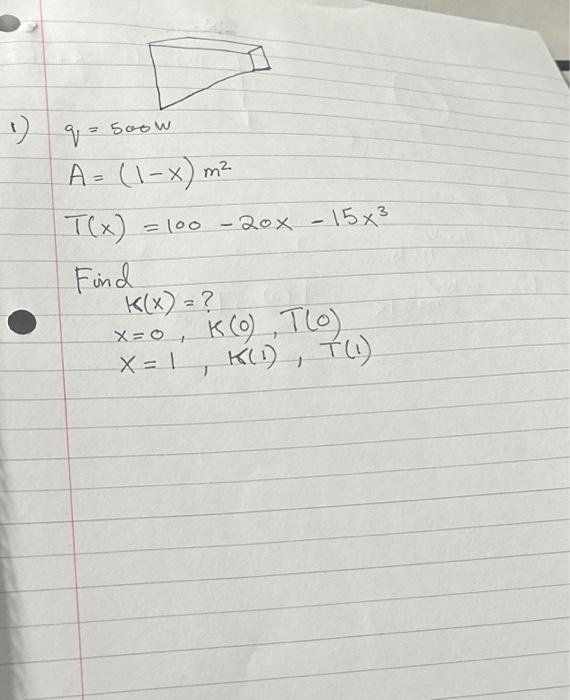 1) q = 500W
A = (1-x) m²
T(x) = 100 - 20x - 15x³
Find
K(x) = ?
x=0, K(0), T(0)
x = 1, K(1), T(1)